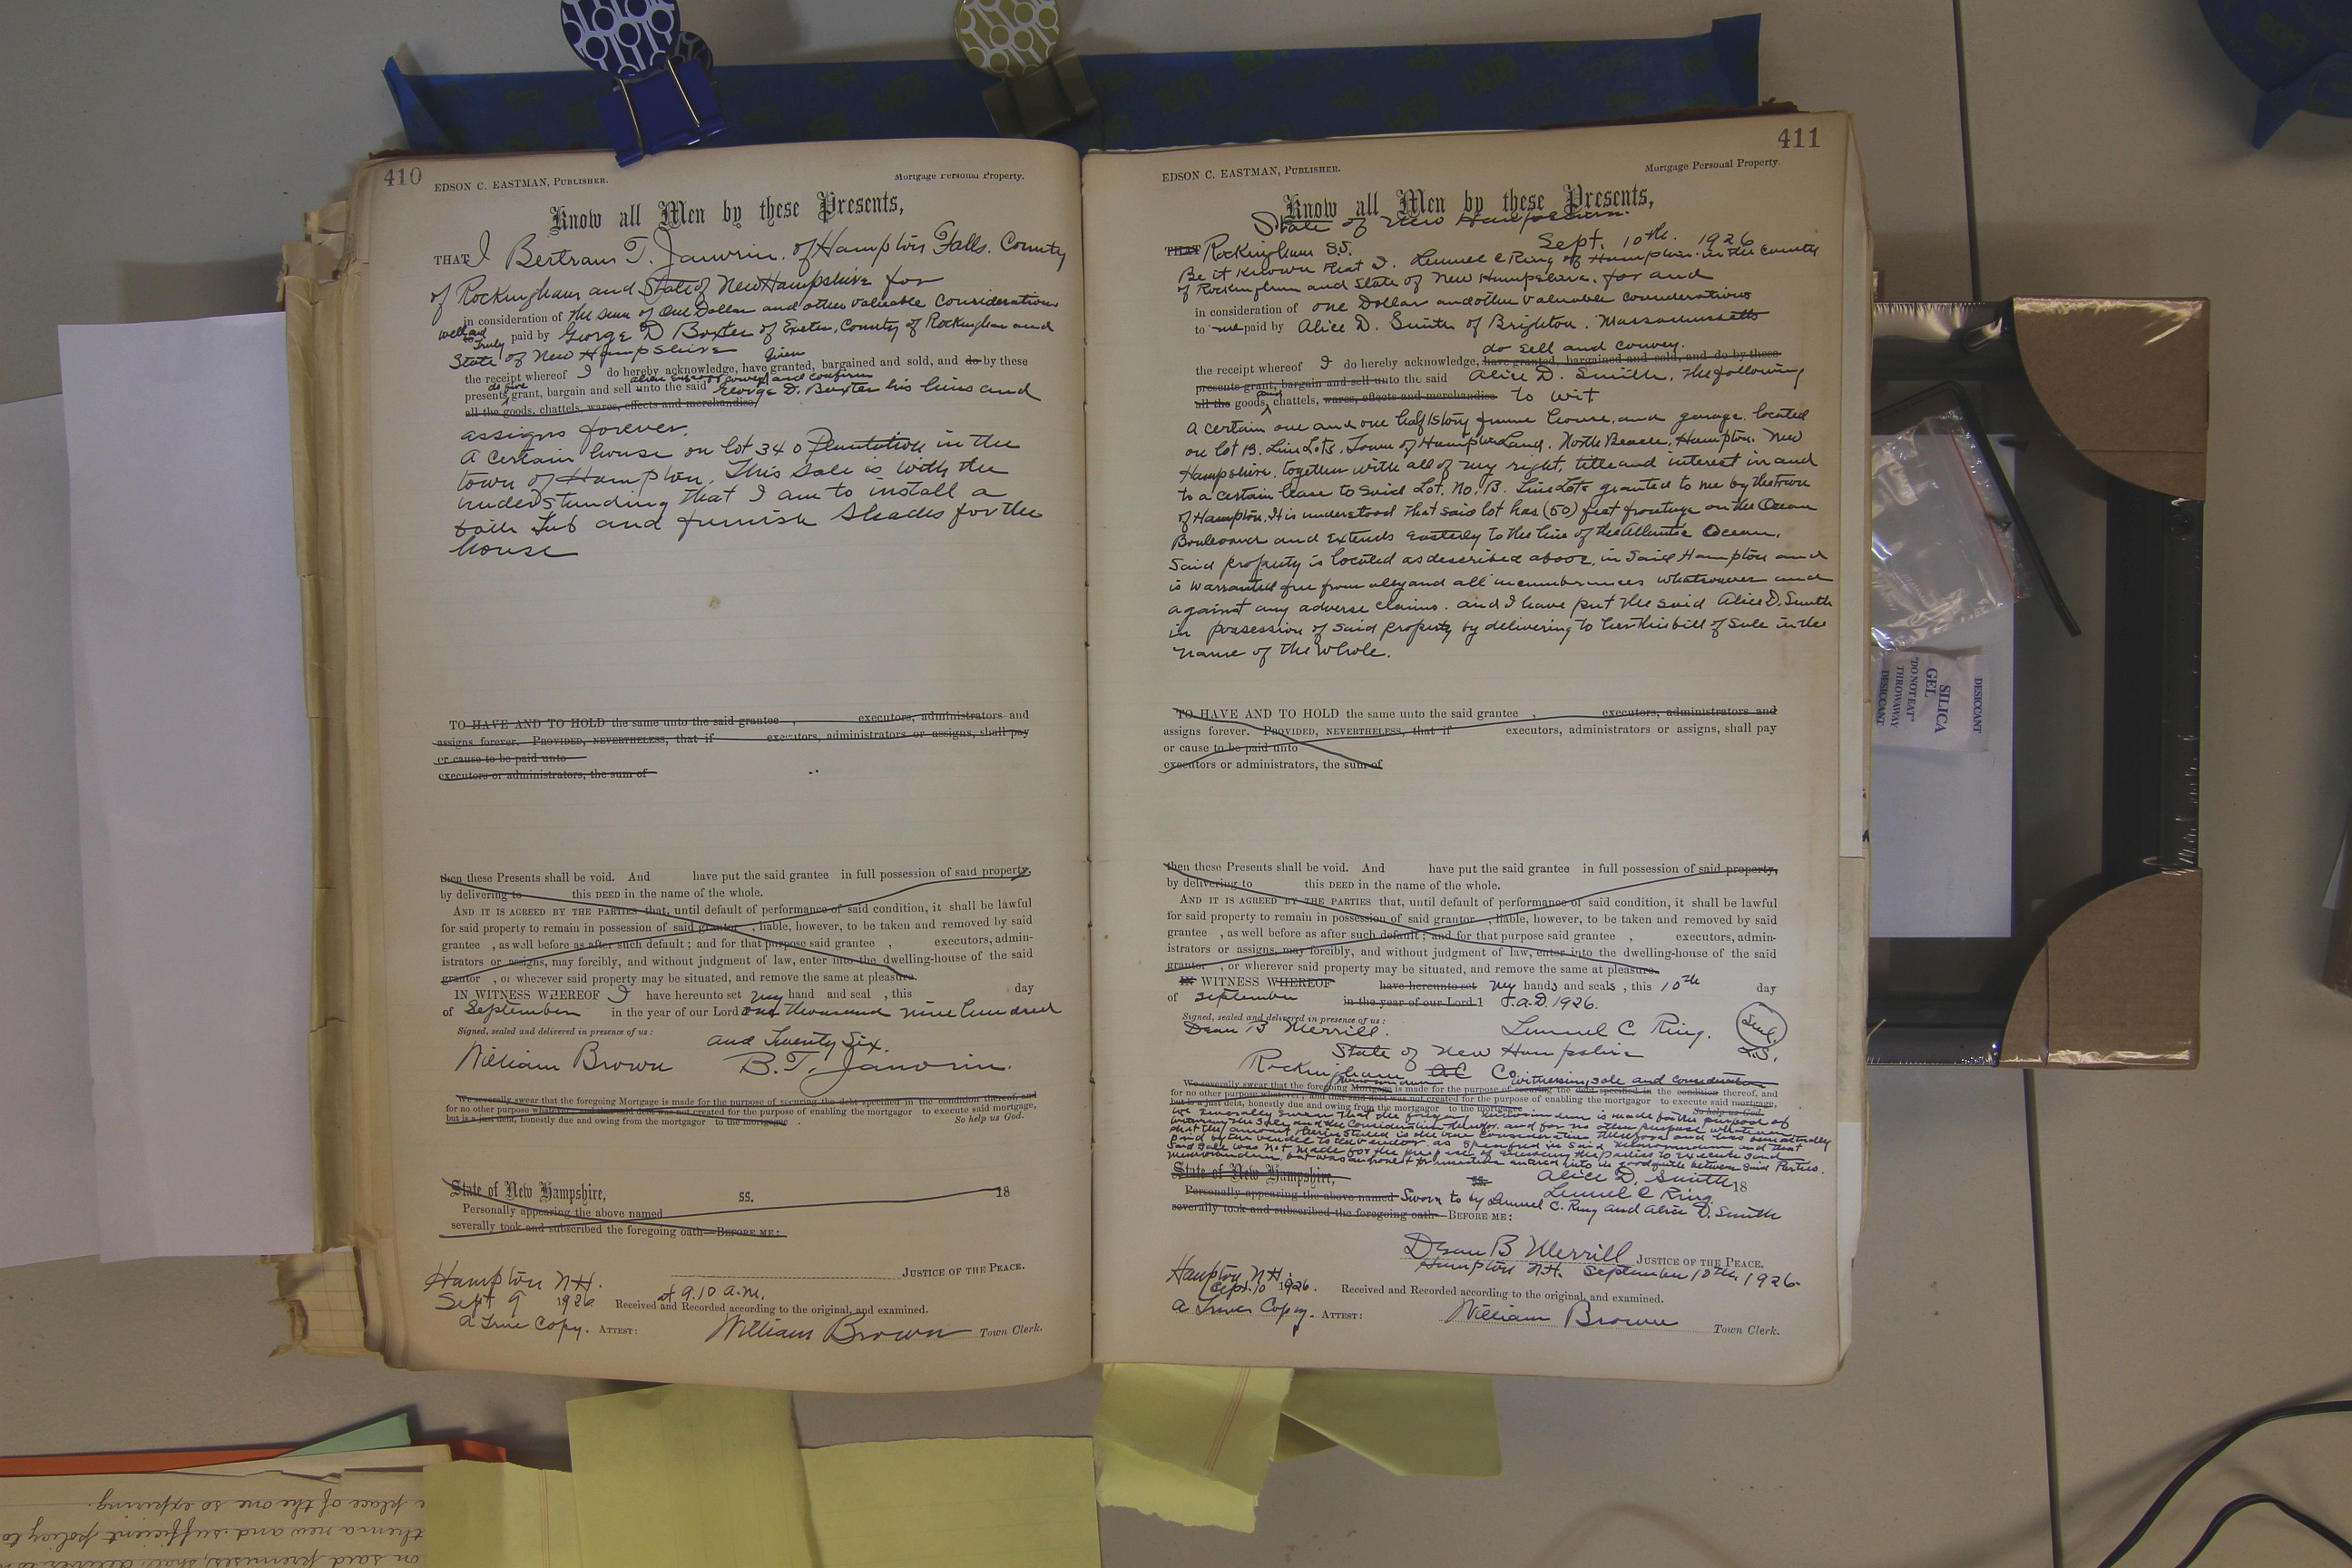 410
EDSON C. EASTMAN, PUBLISHER.
Mortgage Personal Property.
Know all Men by these Presents,
THAT I Bertram T. Janvrin. of Hampton Falls. County
of Rockingham and State of New Hampshire for
in consideration of the sum of One Dollar and other valuable Considerations
well and
to truly paid by George D Boxter of Exeter, County of Rockingham and
State of New Hampshire
given
the receipt whereof I do hereby acknowledge, have granted, bargained and sold, and do by these
do give alien convey and confirm
presents grant, bargain and sell unto the said George D. Baxter his heirs and
all the goods, chattels, wares, effects and merchandise,
assigns forever.
A certain house on lot 340 Plantation in the
town of Hampton. This Sale is with the
understanding that I am to install a
bath tub and furnish shades for the
house
TO HAVE AND TO HOLD the same unto the said grantee , executors, administrators and
assigns forever. PROVIDED, NEVERTHELESS, that if executors, administrators or assigns, shall pay
or cause to be paid unto
executors or administrators, the sum of
then these Presents shall be void. And have put the said grantee in full possession of said property,
by delivering to this DEED in the name of the whole.
AND IT IS AGREED BY THE PARTIES that, until default of performance of said condition, it shall be lawful
for said property to remain in possession of said grantor , liable, however, to be taken and removed by said
grantee , as well before as after such default ; and for that purpose said grantee , executors, admin-
istrators or assigns, may forcibly, and without judgment of law, enter into the dwelling-house of the said
grantor , or wherever said property may be situated, and remove the same at pleasure.
IN WITNESS WHEREOF I have hereunto set my hand and seal , this day
of September in the year of our Lord one thousand nine hundred
Signed, sealed and delivered in presence of us :
and Twenty Six.
William Brown B. T. Janvrin.
We severally swear that the foregoing Mortgage is made for the purpose of securing the debt specified in the condition thereof, and
for no other purpose whatever, and that said debt was not created for the purpose of enabling the mortgagor to execute said mortgage,
but is a just debt, honestly due and owing from the mortgagor to the mortgagee . So help us God.
State of New Hampshire, SS. 18
Personally appearing the above named
severally took and subscribed the foregoing oath—BEFORE ME:
JUSTICE OF THE PEACE.
Hampton N.H.
Sept 9 1926 at 9.10 a.m. Received and Recorded according to the original, and examined.
a True Copy. ATTEST: William Brown Town Clerk.
411
EDSON C. EASTMAN, PUBLISHER.
Mortgage Personal Property.
Know all Men by these Presents,
State of New Hampshire.
THAT Rockingham SS. Sept. 10th. 1926
Be it Known that I. Lemuel C Ring of Hampton in the County
of Rockingham and State of New Hampshire. for and
in consideration of one Dollar and other valuable considerations
to me paid by Alice D. Smith of Brighton. Massachussetts
do sell and convey.
the receipt whereof I do hereby acknowledge, have granted, bargained and sold, and do by these
presents grant, bargain and sell unto the said Alice D. Smith. the following
and
all the goods, chattels, wares, effects and merchandise to wit
A certain one and one half story frame house, and garage. located
on lot 13. Line Lots, Town of Hampton Land. North Beach, Hampton. New
Hampshire. together with all of my right, title and interest in and
to a certain lease to said Lot. No. 13. Line Lots granted to me by the Town
of Hampton. It is understood that said lot has (50) feet frontage on the Ocean
Boulevard and Extends Easterly to the line of the Atlantic Ocean.
Said property is located as described above, in said Hampton and
is warranted free from any and all incumbrances whatsoever and
against any adverse claims. and I have put the said Alice D. Smith
in possession of said property by delivering to her this bill of Sale in the
name of the whole.
TO HAVE AND TO HOLD the same unto the said grantee , executors, administrators and
assigns forever. PROVIDED, NEVERTHELESS, that if executors, administrators or assigns, shall pay
or cause to be paid unto
executors or administrators, the sum of
then these Presents shall be void. And have put the said grantee in full possession of said property,
by delivering to this DEED in the name of the whole.
AND IT IS AGREED BY THE PARTIES that, until default of performance of said condition, it shall be lawful
for said property to remain in possession of said grantor , liable, however, to be taken and removed by said
grantee , as well before as after such default ; and for that purpose said grantee , executors, admin-
istrators or assigns, may forcibly, and without judgment of law, enter into the dwelling-house of the said
grantor , or wherever said property may be situated, and remove the same at pleasure.
IN WITNESS WHEREOF have hereunto set my hands and seals , this 10th day
of September in the year of our Lord 1 J.A.D. 1926.
Signed, sealed and delivered in presence of us :
Dean B Merrill. Lemuel C. Ring. Seal. L.S.
State of New Hampshire
Rockingham
memorandum witnessing sale and consideration
We severally swear that the foregoing Mortgage is made for the purpose of securing the debt specified in the condition thereof, and
for no other purpose whatever, and that said debt was not created for the purpose of enabling the mortgagor to execute said mortgage,
but is a just debt, honestly due and owing from the mortgagor to the mortgagee So help us God.
We severally swear that the foregoing memorandum is made for the purpose of
witnessing the Sale and the Consideration therefor. and for no other purpose whatever
that the amount therein stated is the true consideration therefor and has been actually
paid by the vendee to the vendor as specified in said memorandum and that
said sale was not made for the purpose of enabling the parties to execute said
memorandum, but was an honest transaction entered into in good faith between said Parties.
State of New Hampshire, SS. Alice D. Smith 18
Lemuel C Ring
Personally appearing the above named Sworn to by Lemuel C. Ring and Alice D. Smith
severally took and subscribed the foregoing oath— BEFORE ME:
Dean B Merrill JUSTICE OF THE PEACE.
Hampton N.H. September 10th, 1926.
Hampton N.H.
Sept. 10 1926. Received and Recorded according to the original, and examined.
a True Copy. ATTEST: William Brown Town Clerk.
DESICCANT
SILICA
GEL
"DO NOT EAT"
THROWAWAY
DESICCANT
e place of the one so expiring.
them a new and sufficient policy to
on said premises, shall deliver to